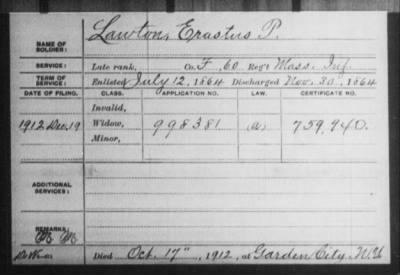 NAME OF SOLDIER: Lawton, Erastus P.
SERVICE: Late rank, Co. F, 60 Reg't Mass. Inf.
TERM OF SERVICE: Enlisted July 12, 1864 Discharged Nov. 30, 1864
DATE OF FILING. CLASS. APPLICATION NO. LAW. CERTIFICATE NO.
Invalid,
1912 Dec. 19 Widow, 998381 759,940.
Minor,
ADDITIONAL SERVICES:
REMARKS:
Died Oct. 17", 1912, at Garden City, N.Y.